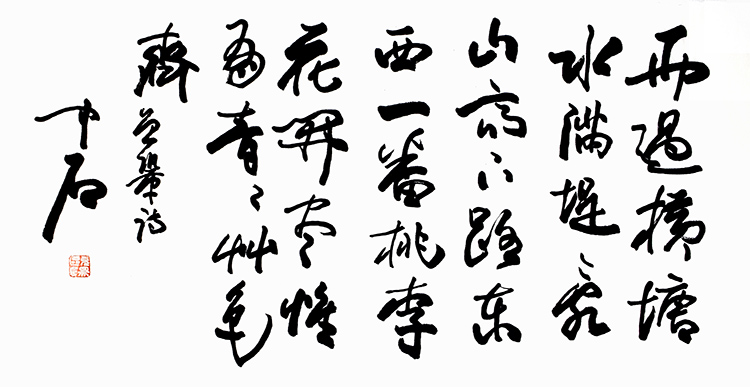 雨過橫塘
水滿堤亂
山高下路東
西一番桃李
花開盡惟
有青々艸色
齊
曾鞏詩
中石